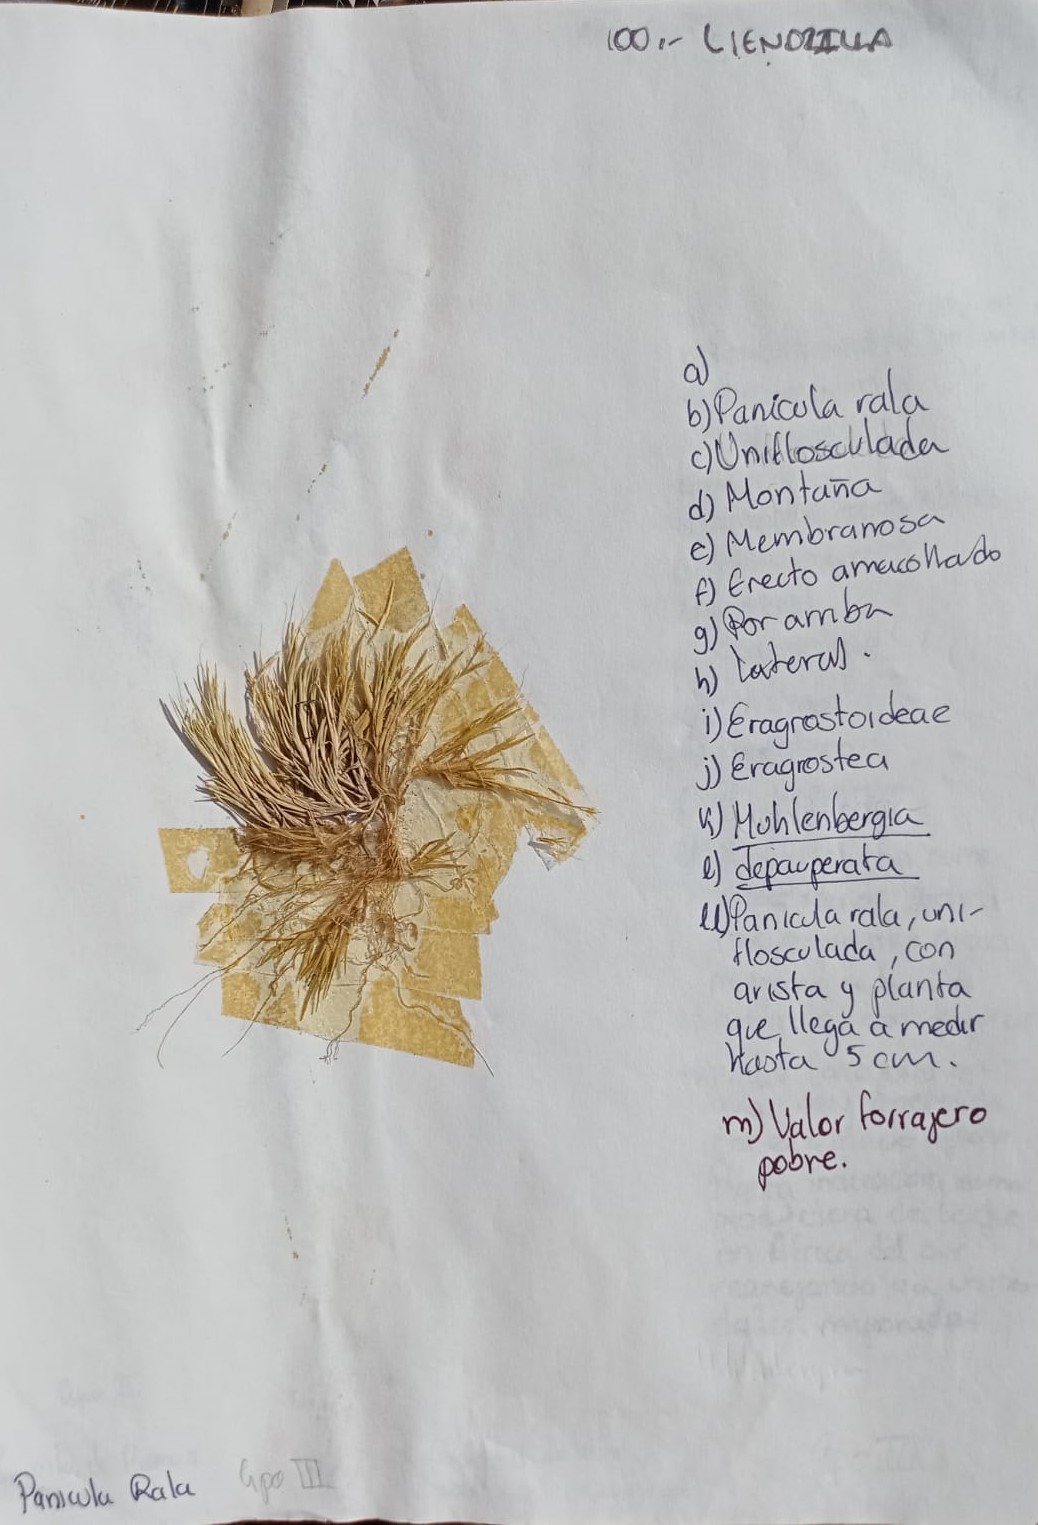 100.- LIENDRILLA
a)
b) Panicula rala
c) Uniflosculada
d) Montaña
e) Membranosa
f) Erecto amacollado
g) Por amba
h) Lateral.
i) Eragrostoideae
j) Eragrostea
k) Muhlenbergia
l) depauperata
ll) Panicula rala, uni-
flosculada, con
arista y planta
que llega a medir
hasta 5 cm.
m) Valor forrajero
pobre.
Panicula Rala Gpo III